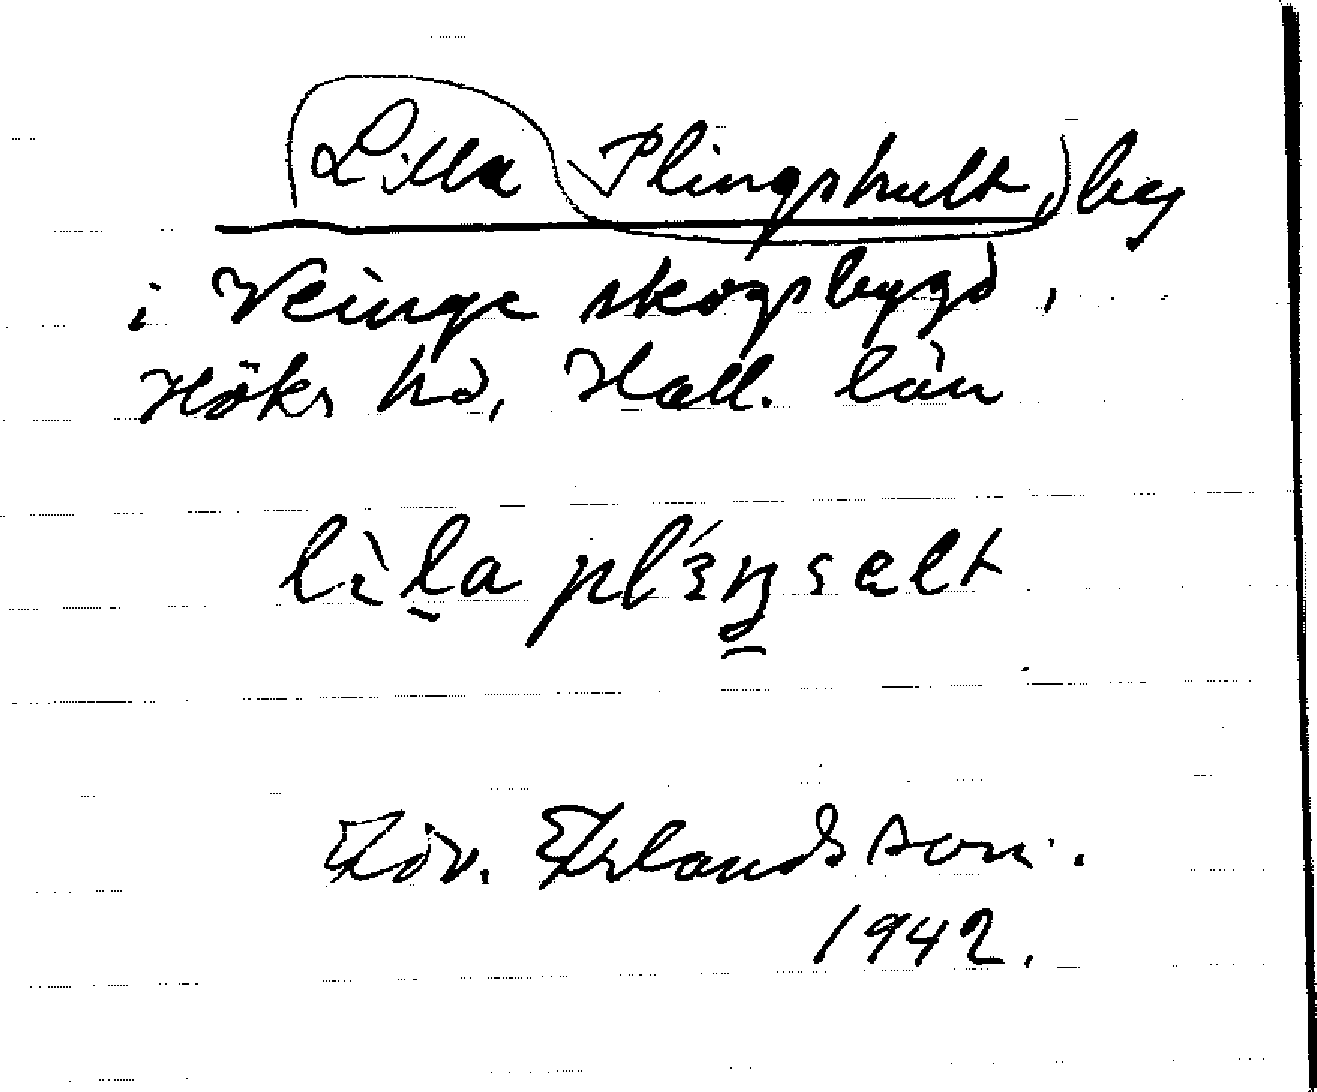 Lilla Plingshult, by
i Veinge skogsbygd,
Höks hd, Hall. län
lìḷa pl'ɜŋsɐlt
Edv. Erlandsson.
1942.